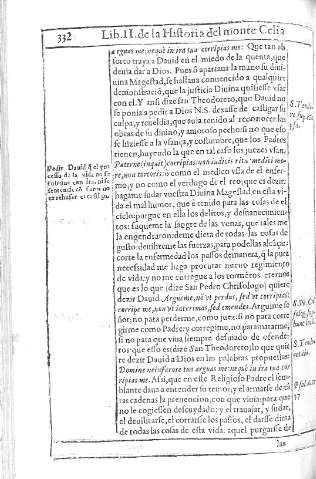 332 Lib. II. de la Historia del monte Celia
arguas me: neque in ira tua corripias me: Que tan ab-
sorto traya a Dauid en el miedo de la quenta, que
deuia dar a Dios. Pues si apartaua la mano su diui-
na Magestad, se hallaua conuencido a qualquier
demonstracion, que la justicia Diuina quisiesse vsar
con el. Y ansi dize San Theodoreto, que Dauid no
se ponia a pedir a Dios N. S. dexasse de castigar su
culpa, y rebeldia, que solo tenido al reconocer las
obras de su diuino, y amoroso pecho: sino que esso
se hiziesse a la vsança, y costumbre, que los Padres
tienen, huyendo la que en tal caso los juezes vsan.
Paterne (inquit) corripias: non iudicis ritu medici mo-
re, non tortoris: ò como el medico vsa de el enfer-
mo, y no como el verdugo de el reo, que es dezir:
hagame sudar vuestra Diuina Magestad en esta vi-
da el mal humor, que è tenido para las cosas de el
cielo: purgue en ella los delitos, y desuanecimien-
tos: saqueme la sangre de las venas, que tales me
la engendraron: deme dieta de todas las cosas de
gusto: debiliteme las fuerças, para podellas alcáçar:
corte la enfermedad los passos de manera, q̃ la pura
necessidad me haga procurar nueuo regimiento
de vida: y no me entregue a los tormẽtos eternos
que es lo que (dize San Pedro Chrisologo) quiere
dezir Dauid. Argue me, nõ vt perdas, sed vt corripas:
corripe me, non vt interimas, sed emendes. Arguime Se-
ñor, no para perderme, como juez: si no para corre-
girme como Padre: y corregime, no para matarme,
si no para que viua siempre desuiado de ofende-
ros: que esso es (dize San Theodoreto) lo que quie-
re dezir Dauid a Dios en las palabras propuestas:
Domine ne in furore tuo arguas me: neque in ira tua cor-
ripias me. Assi, que en este Religioso Padre el sem-
blante daua a entender su temor, y el armarse de tã-
tas cadenas la preuencion, con que viuia: para que
no le cogiessen descuydado: y el trauajar, y sudar,
el deuilitarse, el cortarse los passos, el darsse dieta
de todas las cosas de esta vida: aquel purgarse de